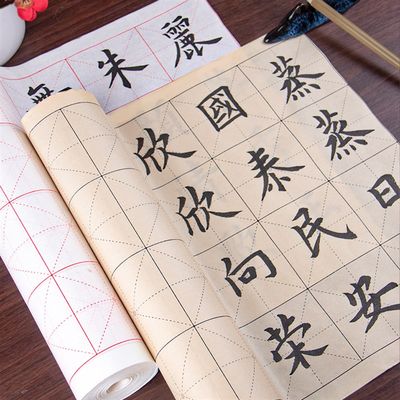 麗
朱
蒸蒸日
國泰民安
欣欣向荣